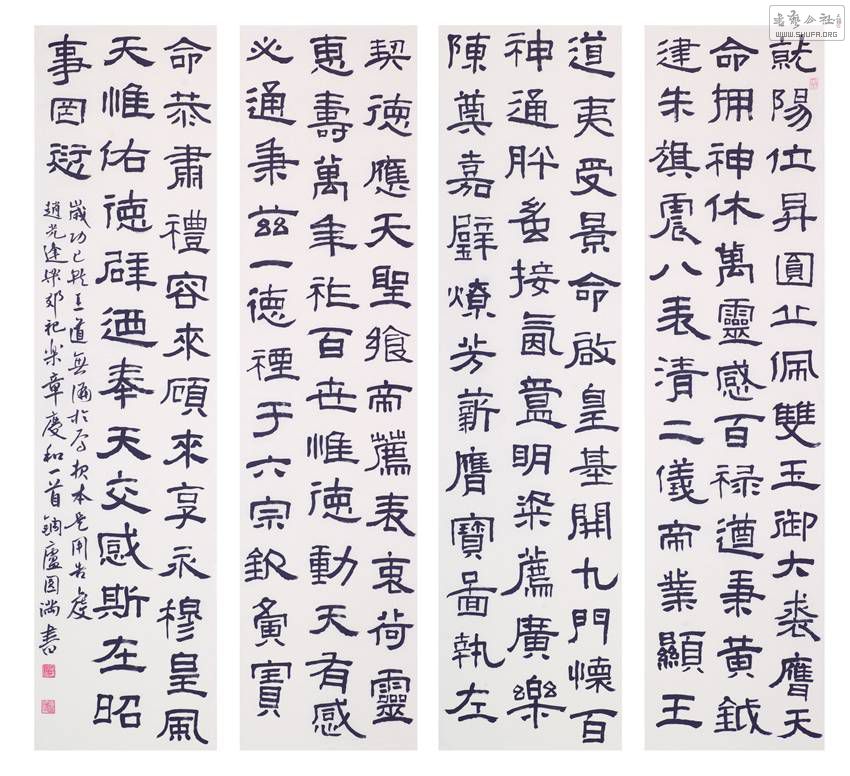 就陽位昇圓丘佩雙玉御大裘膺天
命拥神休萬靈感百禄遒秉黄鉞
建朱旗震八表清二儀帝業顯王
道夷受景命啟皇基開九門懷百
神通肸蚃接氤氲明粢薦廣樂
陳奠嘉璧燎芳薪膺寶圖執左
契德應天聖飨帝薦表衷荷靈
惠壽萬年祚百世惟德動天有感
必通秉兹一德禋于六宗欽夤寶
命恭肅禮容來顧來享永穆皇風
天惟佑德辟迺奉天交感斯在昭
事罔愆
歲功已畢王道無偏於焉报本是用告虔
趙光逢梁郊祀樂章慶和一首 書
WWW.SHUFA.ORG